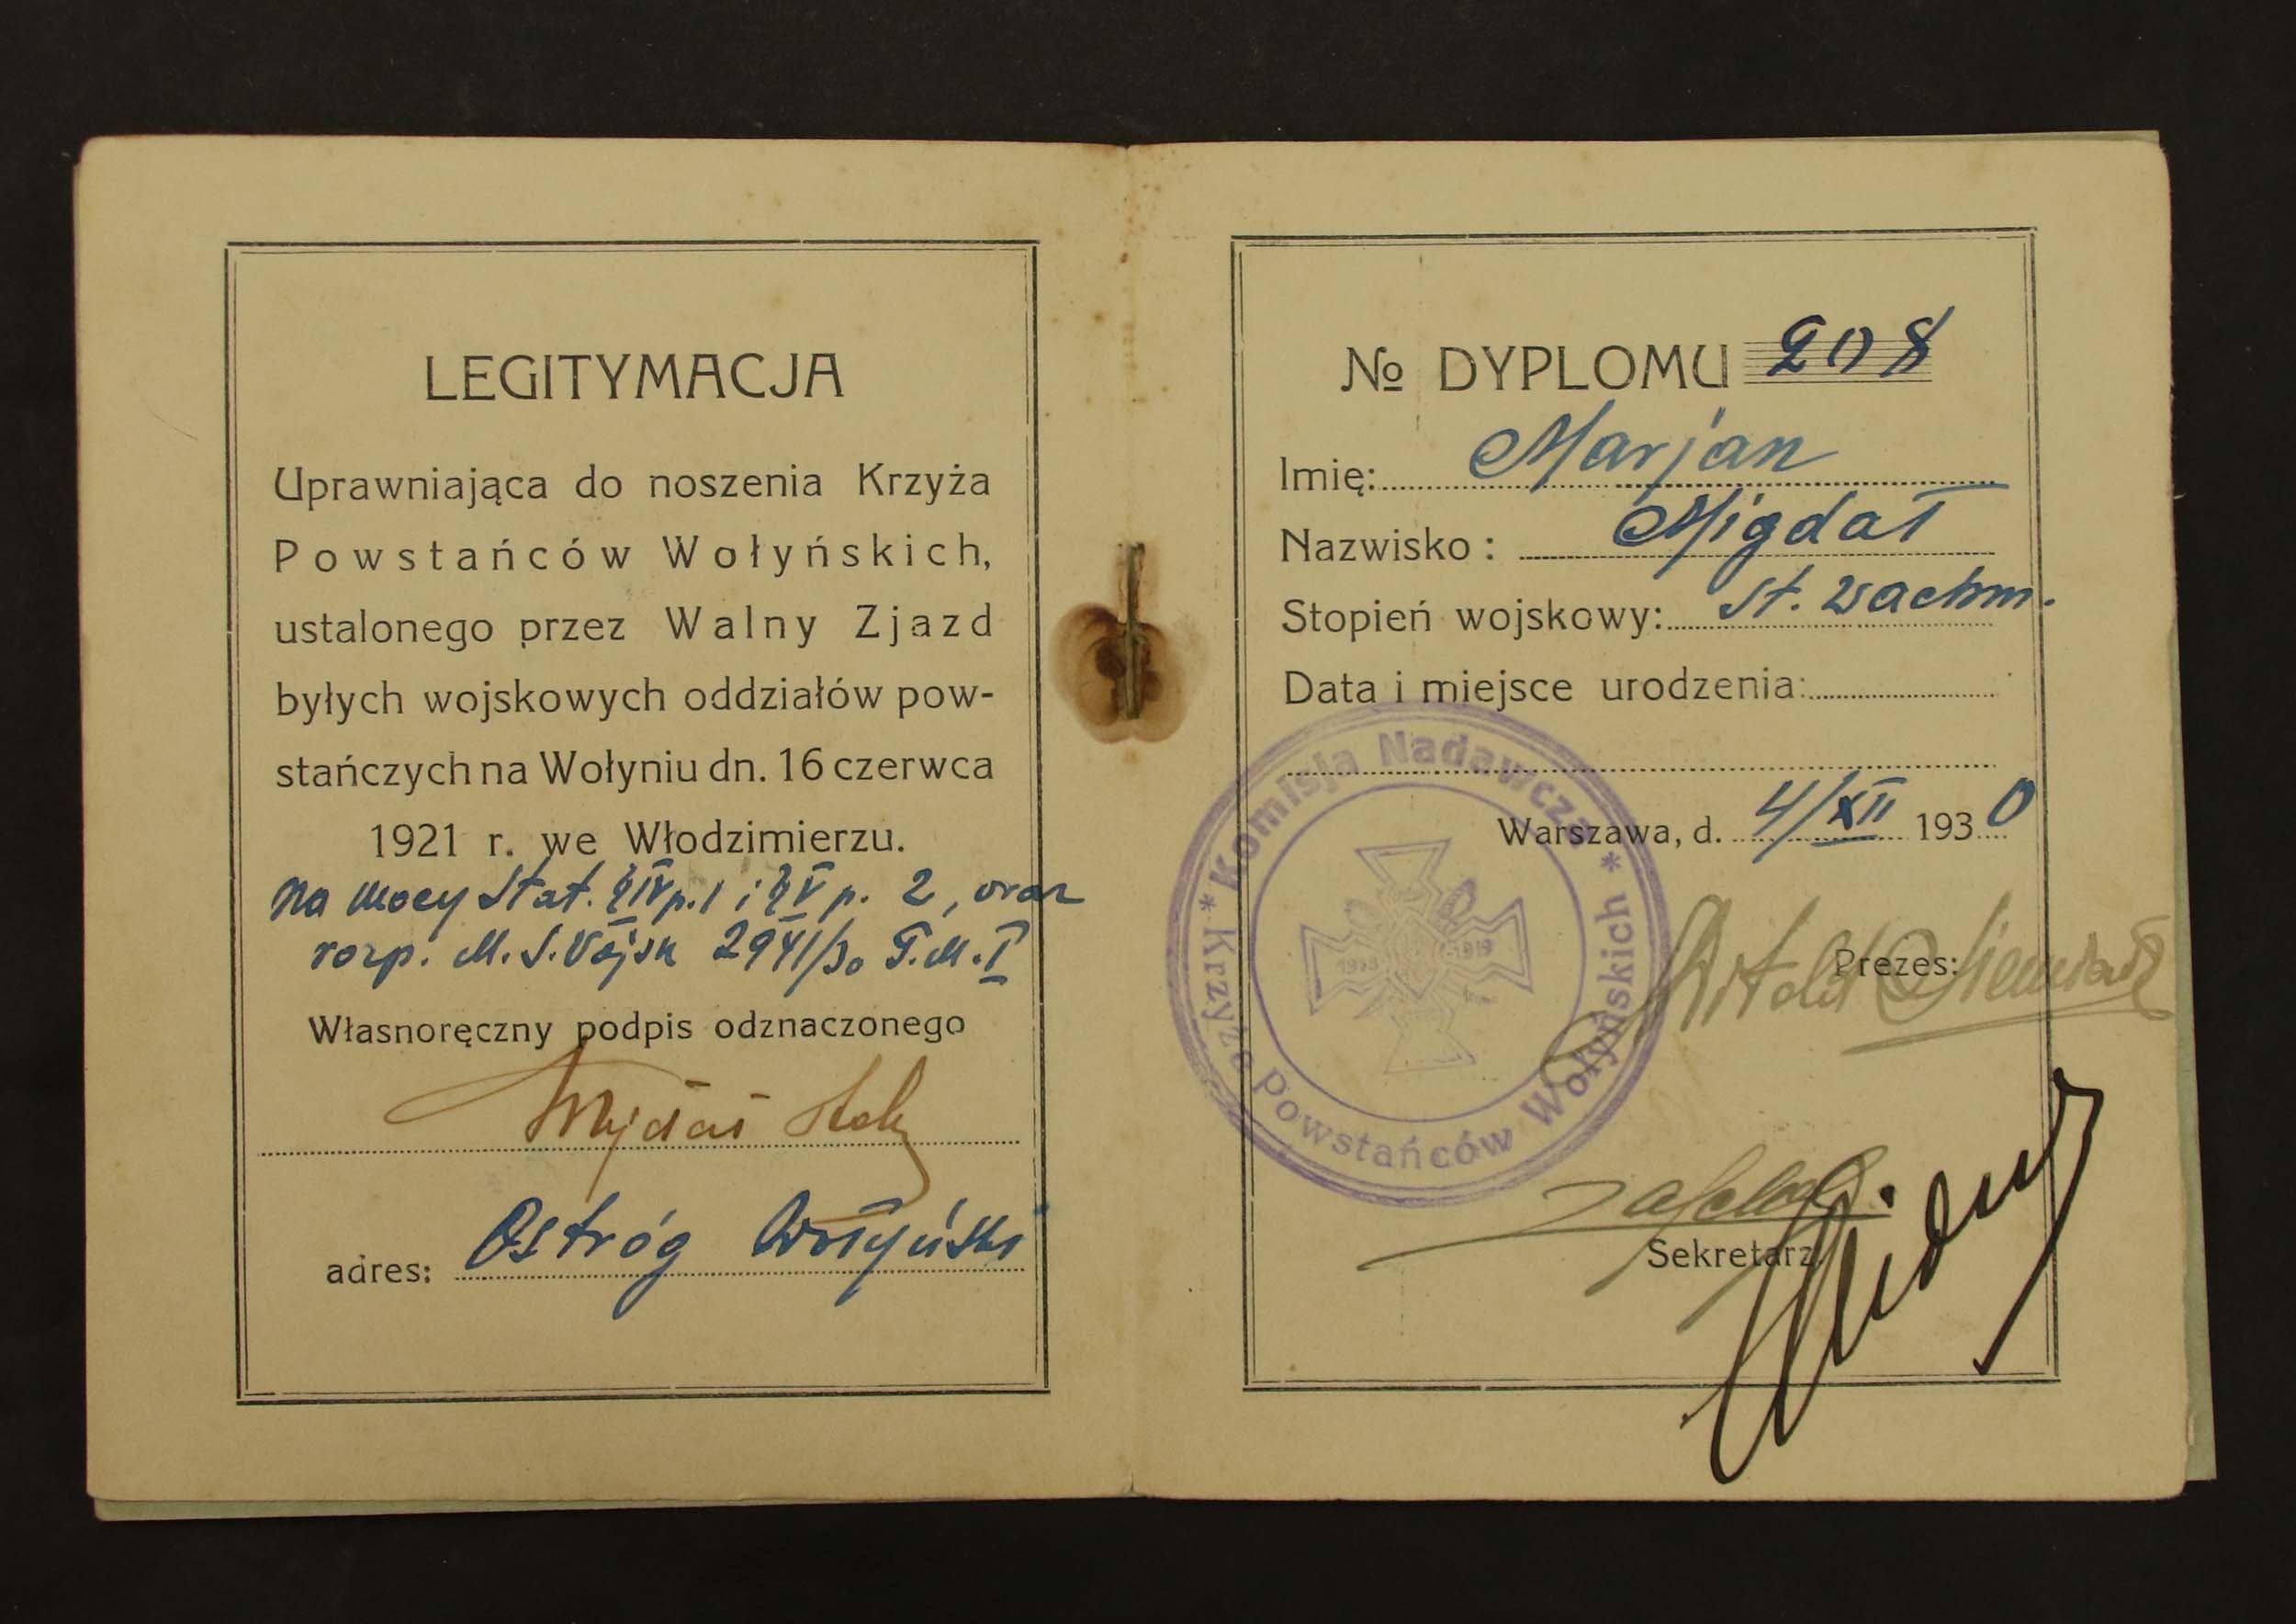 LEGITYMACJA
Uprawniająca do noszenia Krzyża
Powstańców Wołyńskich,
ustalonego przez Walny Zjazd
byłych wojskowych oddziałów pow-
stańczych na Wołyniu dn. 16 czerwca
1921 r. we Włodzimierzu.
Na mocy Stat. § IV p. 1 i § V p. 2, oraz
rozp. M. S. Wojsk 2941/30 T. M. I
Własnoręczny podpis odznaczonego
adres: Ostróg Wołyński
№ DYPLOMU 208
Imię: Marjan
Nazwisko: Migdał
Stopień wojskowy: st. wachm.
Data i miejsce urodzenia:
Warszawa, d. 4/XII 1930
* Komisja Nadawcza *
Krzyża Powstańców Wołyńskich
1918 - 1919
Prezes:
Witold
Sekretarz